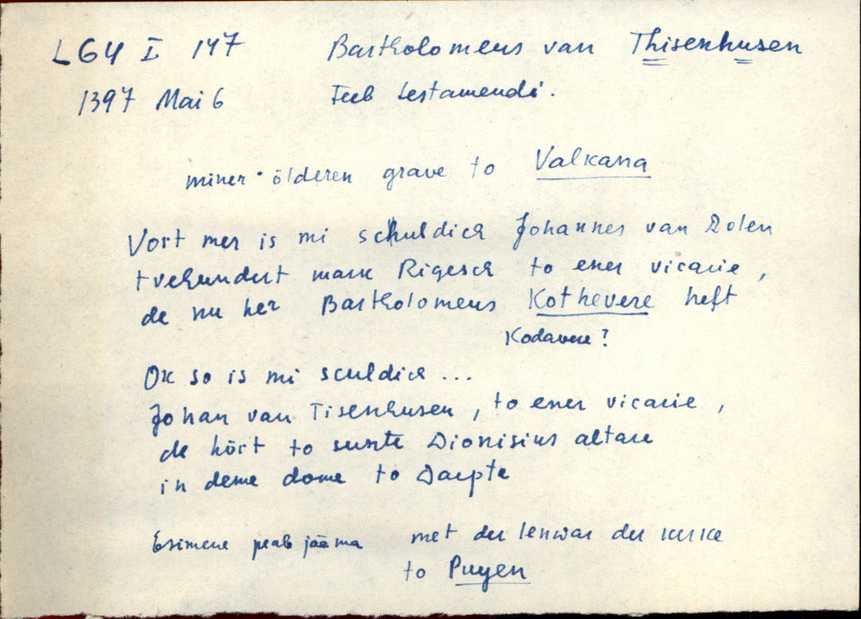 LGU I 147 Bartholomeus van Thisenhusen
1397 Mai 6 Teeb testamendi.
miner ölderen grave to Valkana
Vort mer is mi schuldich Johannes van Rolen
tvehundert mark Rigesch to ener vicarie,
de nu her Bartholomeus Kothevere heft
Kodavere?
Ok so is mi sculdich ...
Johan van Tisenhusen, to ener vicarie,
de hört to sunte Dionisius altare
in deme dome to Darpte
Esimene peab jääma met der der kerke
to Puyen